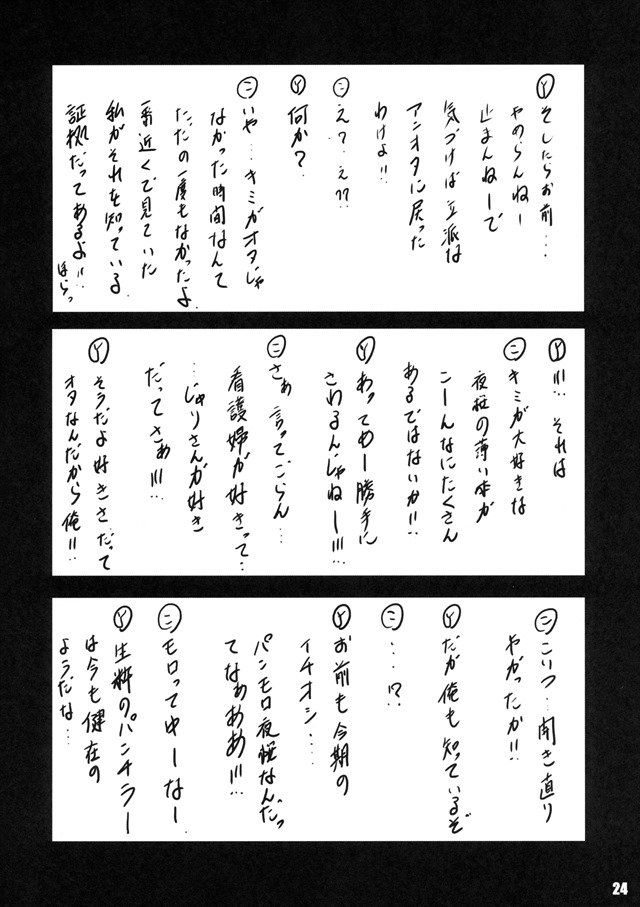 Ⓨそしたらお前…
やめらんねー
止まんねーで
気づけば立派な
アニオタに戻った
わけよ!!
㊁え?え??
Ⓨ何か?
㊁いや…キミがオタじゃ
なかった時間なんて
ただの一度もなかったよ
一番近くで見ていた
私がそれを知っている
証拠だってあるよ!!…
ほらっ
Ⓨ!!!…それは
㊁キミが大好きな
夜桜の薄い本が
こーんなにたくさん
あるではないか!!…
Ⓨあってめー勝手に
さわるんじゃねー!!!…
㊁さぁ言ってごらん…
看護婦が好きって…
…じゅりさんが好き
だってさぁ!!!…
Ⓨそうだよ好きさだって
オタなんだから俺!!…
㊁こいつ…開き直り
やがったか!!
Ⓨだが俺も知っているぞ
㊁…!?
Ⓨお前も今期の
イチオシ…
パンモロ夜桜なんだっ
てなぁぁぁ!!!…
㊁モロってゆーなー
Ⓨ生粋のパンチラー
は今も健在の
ようだな…
24